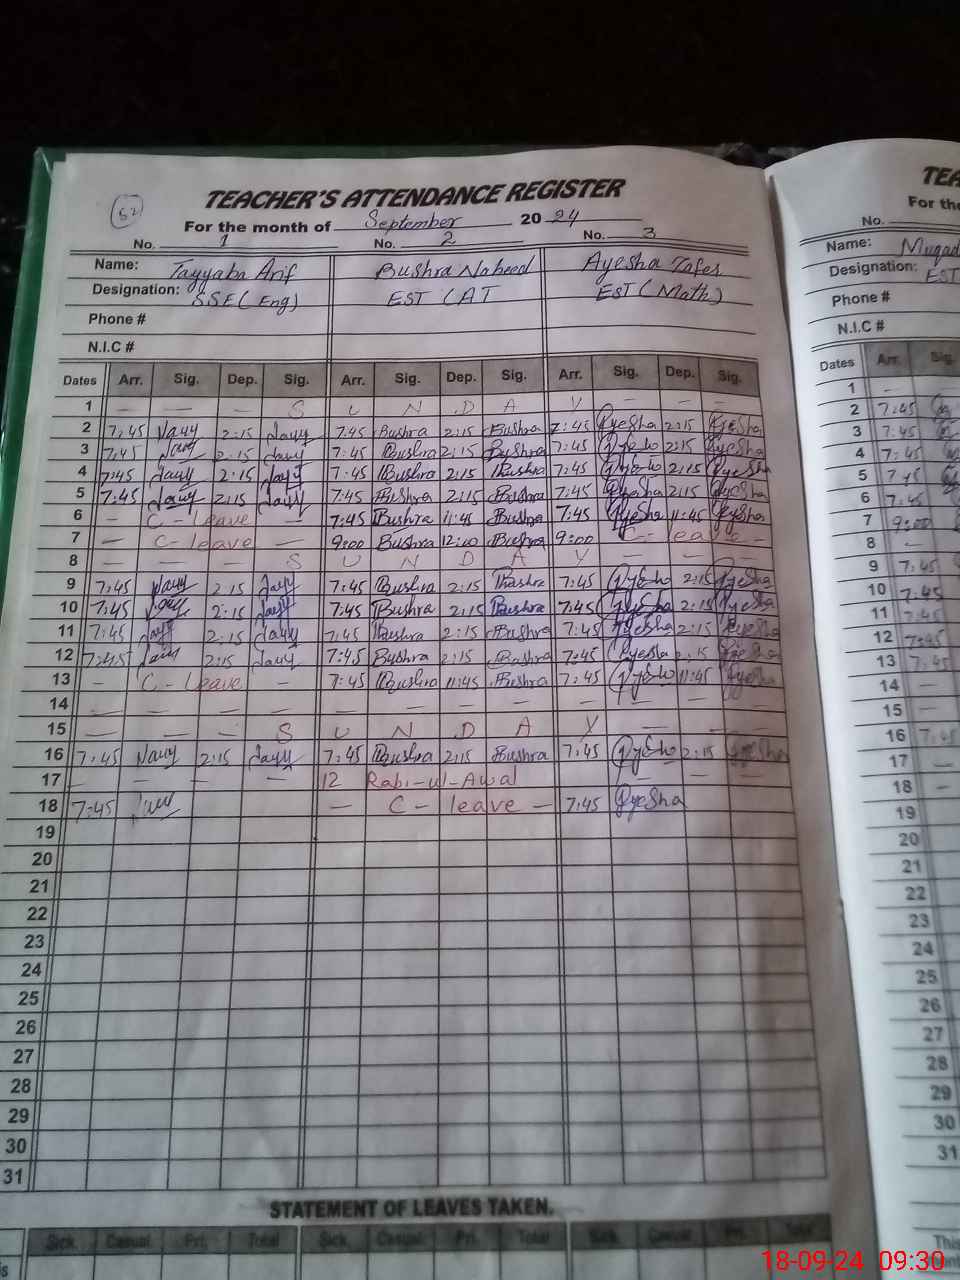 52
TEACHER'S ATTENDANCE REGISTER
For the month of September 2024
No. 1 No. 2 No. 3
Name: Tayyaba Arif Bushra Naheed Ayesha
Designation: SSE (Eng) EST (AT EST (Math)
Phone #
N.I.C #
Dates Arr. Sig. Dep. Sig. Arr. Sig. Dep. Sig. Arr. Sig. Dep. Sig.
1 — — - S U N D A Y — - -
2 7:45 2:15 7:45 Bushra 2:15 Bushra 7:45 Ayesha 2:15 Ayesha
3 7:45 2:15 7:45 Bushra 2:15 Bushra 7:45 2:15 Ayesha
4 7:45 2:15 7:45 Bushra 2:15 Bushra 7:45 2:15 Ayesha
5 7:45 2:15 7:45 Bushra 2:15 Bushra 7:45 Ayesha 2:15 Ayesha
6 — C - leave — 7:45 Bushra 11:45 Bushra 7:45 Ayesha 11:45 Ayesha
7 — C - leave — 9:00 Bushra 12:00 Bushra 9:00 C - leave -
8 — — - S U N D A Y — - -
9 7:45 2:15 7:45 Bushra 2:15 Bushra 7:45 2:15 Ayesha
10 7:45 2:15 7:45 Bushra 2:15 Bushra 7:45 Ayesha 2:15 Ayesha
11 7:45 2:15 7:45 Bushra 2:15 Bushra 7:45 Ayesha 2:15 Ayesha
12 7:45 2:15 7:45 Bushra 2:15 Bushra 7:45 Ayesha 2:15 Ayesha
13 - C - Leave - 7:45 Bushra 11:45 Bushra 7:45 11:45 Ayesha
14 — — — — — — — — — — — —
15 — — - S U N D A Y — - -
16 7:45 2:15 7:45 Bushra 2:15 Bushra 7:45 2:15 Ayesha
17 - - - - 12 Rabi-ul-Awal - - -
18 7:45 — C - leave — 7:45 Ayesha
19
20
21
22
23
24
25
26
27
28
29
30
31
STATEMENT OF LEAVES TAKEN.
Sick. Casual. Pri. Total Sick. Casual. Pri. Total Sick. Casual. Pri. Total
TEA
For the
No.
Name:
Designation: EST
Phone #
N.I.C #
Arr. Sig.
1 —
2 7:45
3 7:45
4 7:45
5 7:45
6 7:45
7 9:00
8 —
9 7:45
10 7:45
11 7:45
12 7:45
13 7:45
14 —
15 —
16 7:45
17 —
18 —
19
20
21
22
23
24
25
26
27
28
29
30
31
This
18-09-24 09:30